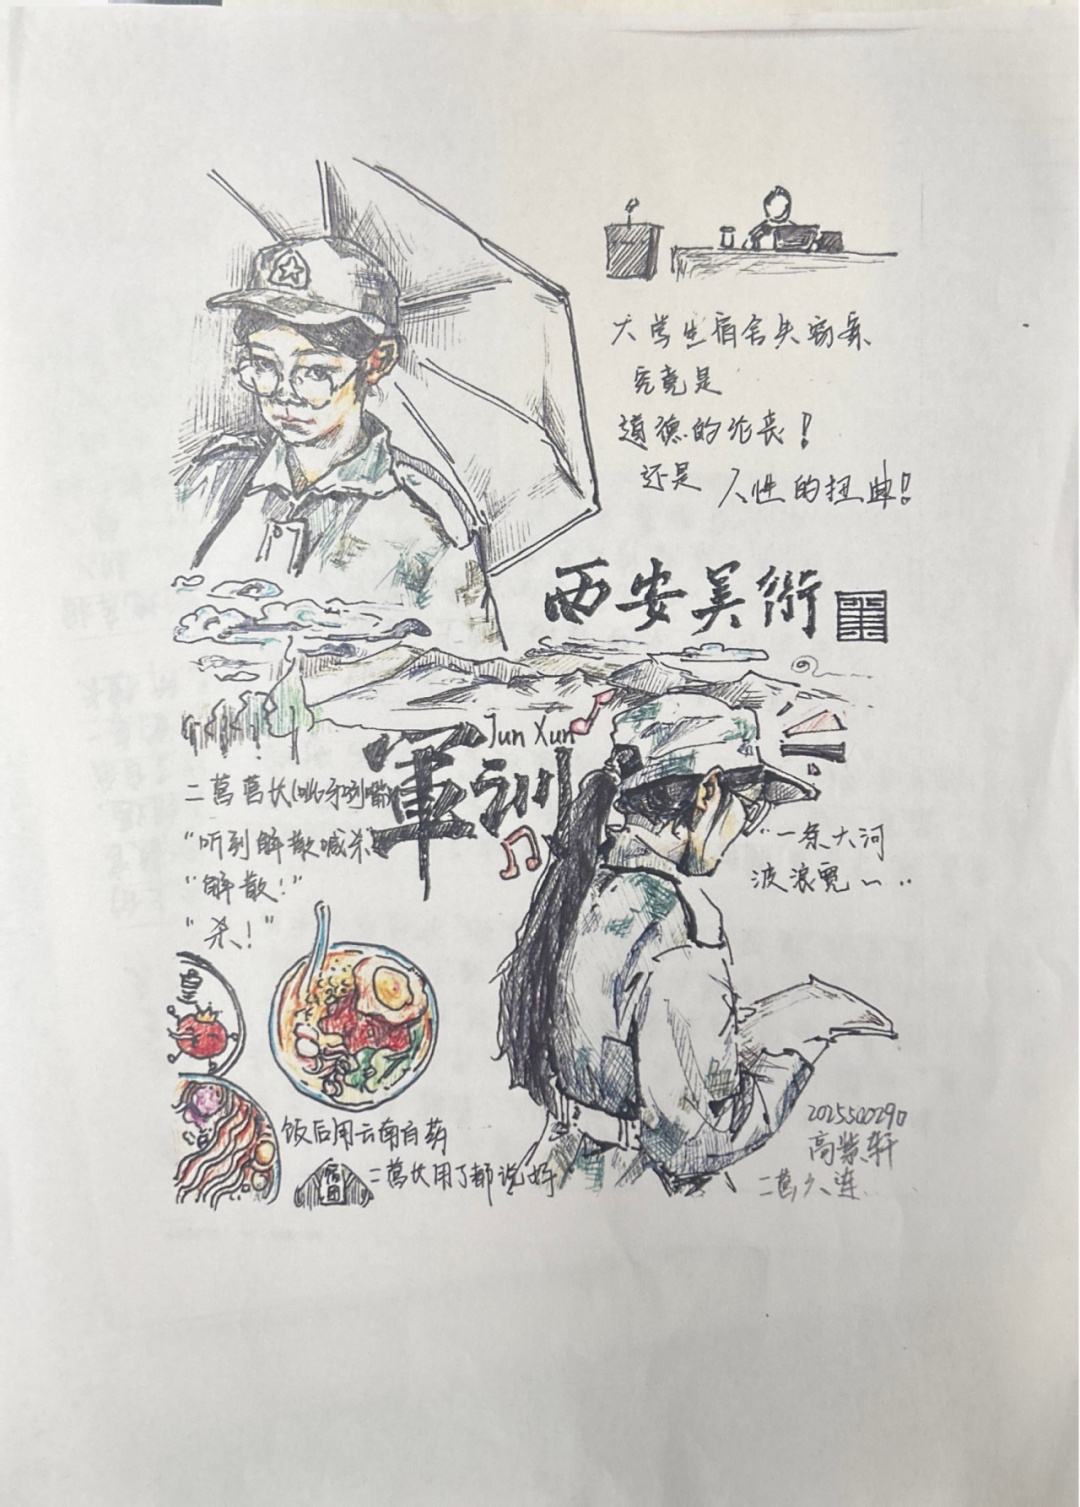 大学生宿舍失窃案
究竟是
道德的沦丧!
还是 人性的扭曲!
107
西安美術
Jun Xun
軍训
二萬萬长(呲牙咧嘴)
"听到解散喊杀"
"解散!"
"杀!"
"一条大河
波浪宽~..
皇
饭后用云南白药
二萬长用了都说好
2025500290
高紫轩
二萬六连